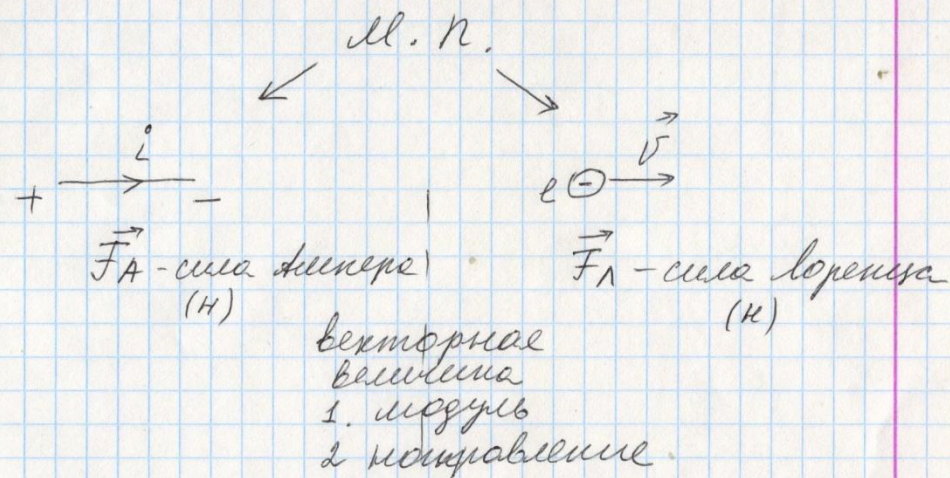 М. п.
i
v
+ −
e −
F_A - сила Ампера
F_Л - сила Лоренца
(Н)
(Н)
векторная
величина
1. модуль
2 направление